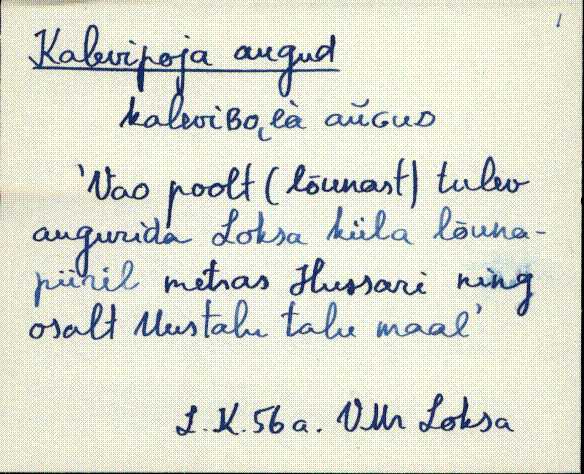 1
Kalevipoja augud
kaleviBo̡là aŭGUD
'Vao poolt (lõunast) tulev
augurida Loksa küla lõuna-
piiril metsas Hussari ning
osalt Uustalu talu maal'
L.K. 56 a. VMr Loksa